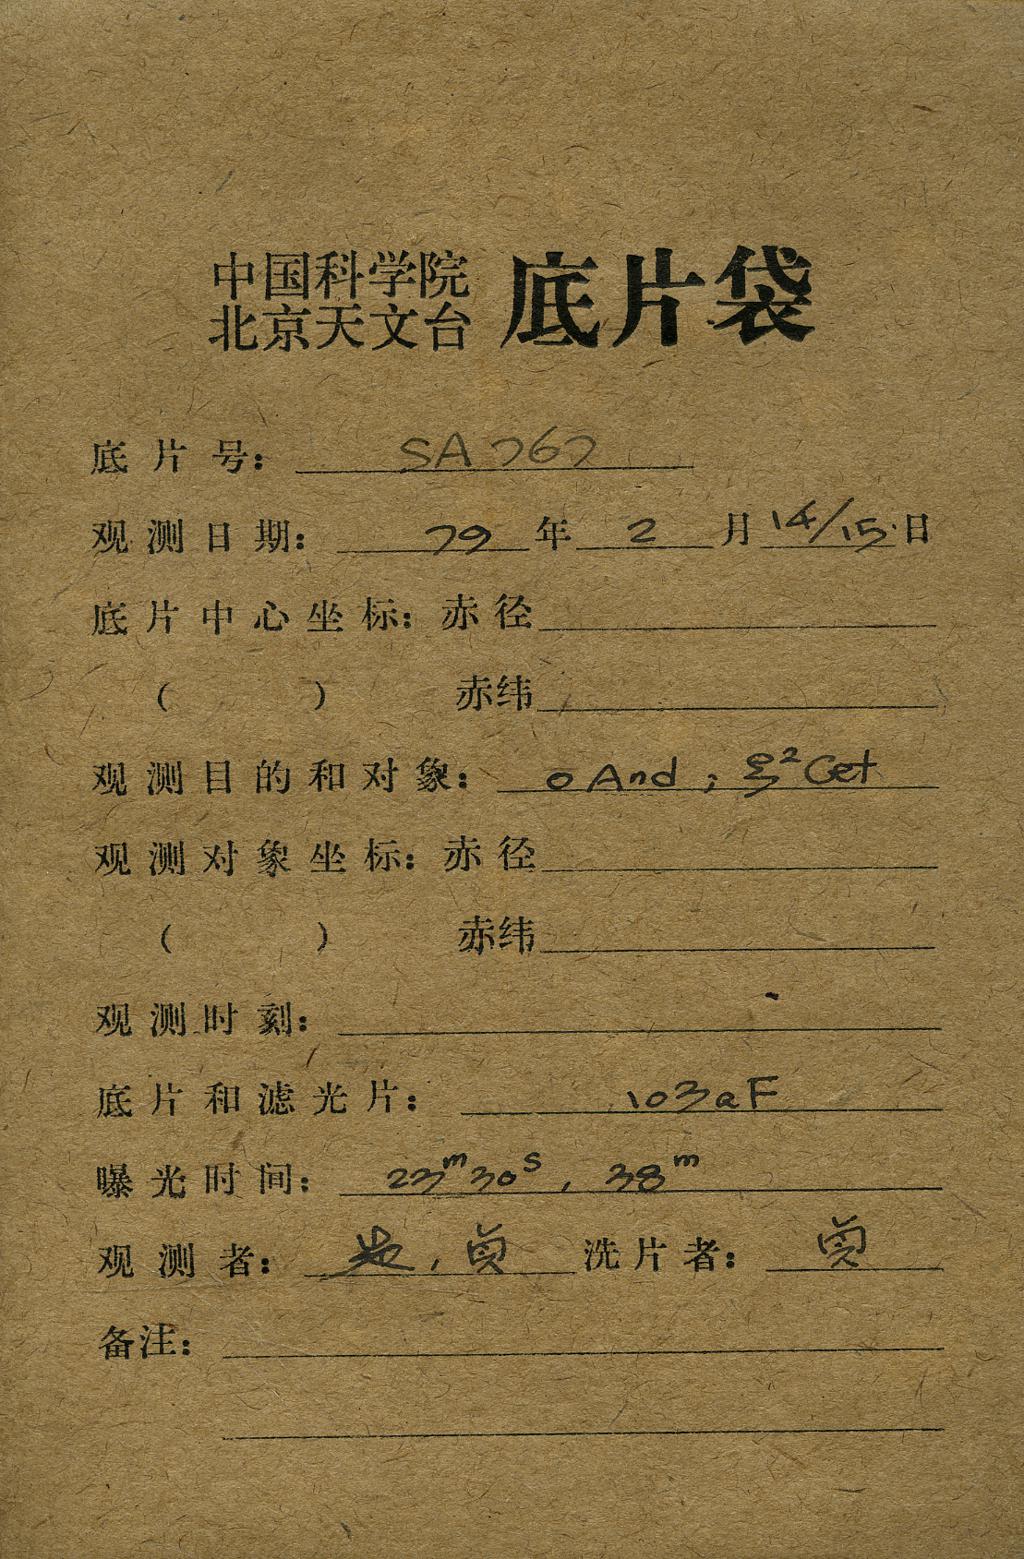 中国科学院
北京天文台 底片袋
底片号： SA767
观测日期： 79年 2 月 14/15日
底片中心坐标：赤径
（ ） 赤纬
观测目的和对象： o And ; ξ² Cet
观测对象坐标：赤径
（ ） 赤纬
观测时刻：
底片和滤光片： 103aF
曝光时间： 23ᵐ30ˢ , 38ᵐ
观测者： , 贞 洗片者： 贞
备注：